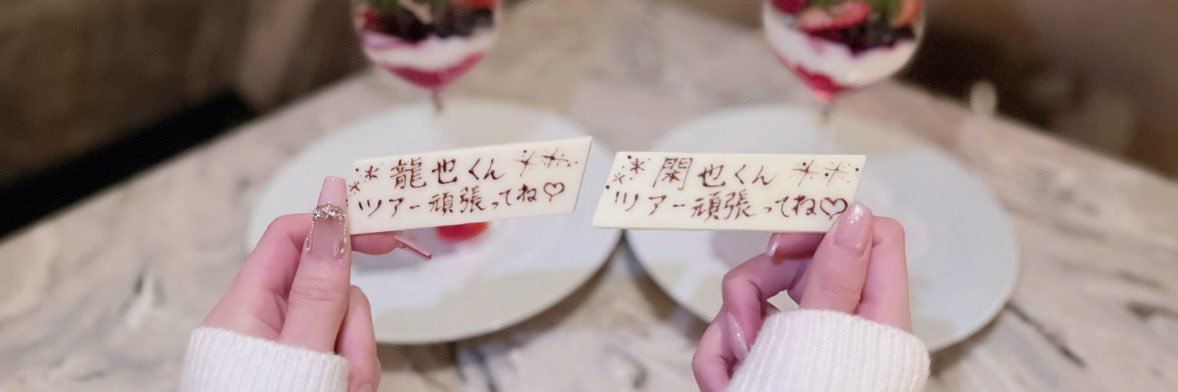 龍也くん
ツアー頑張ってね♡
閑也くん
ツアー頑張ってね♡